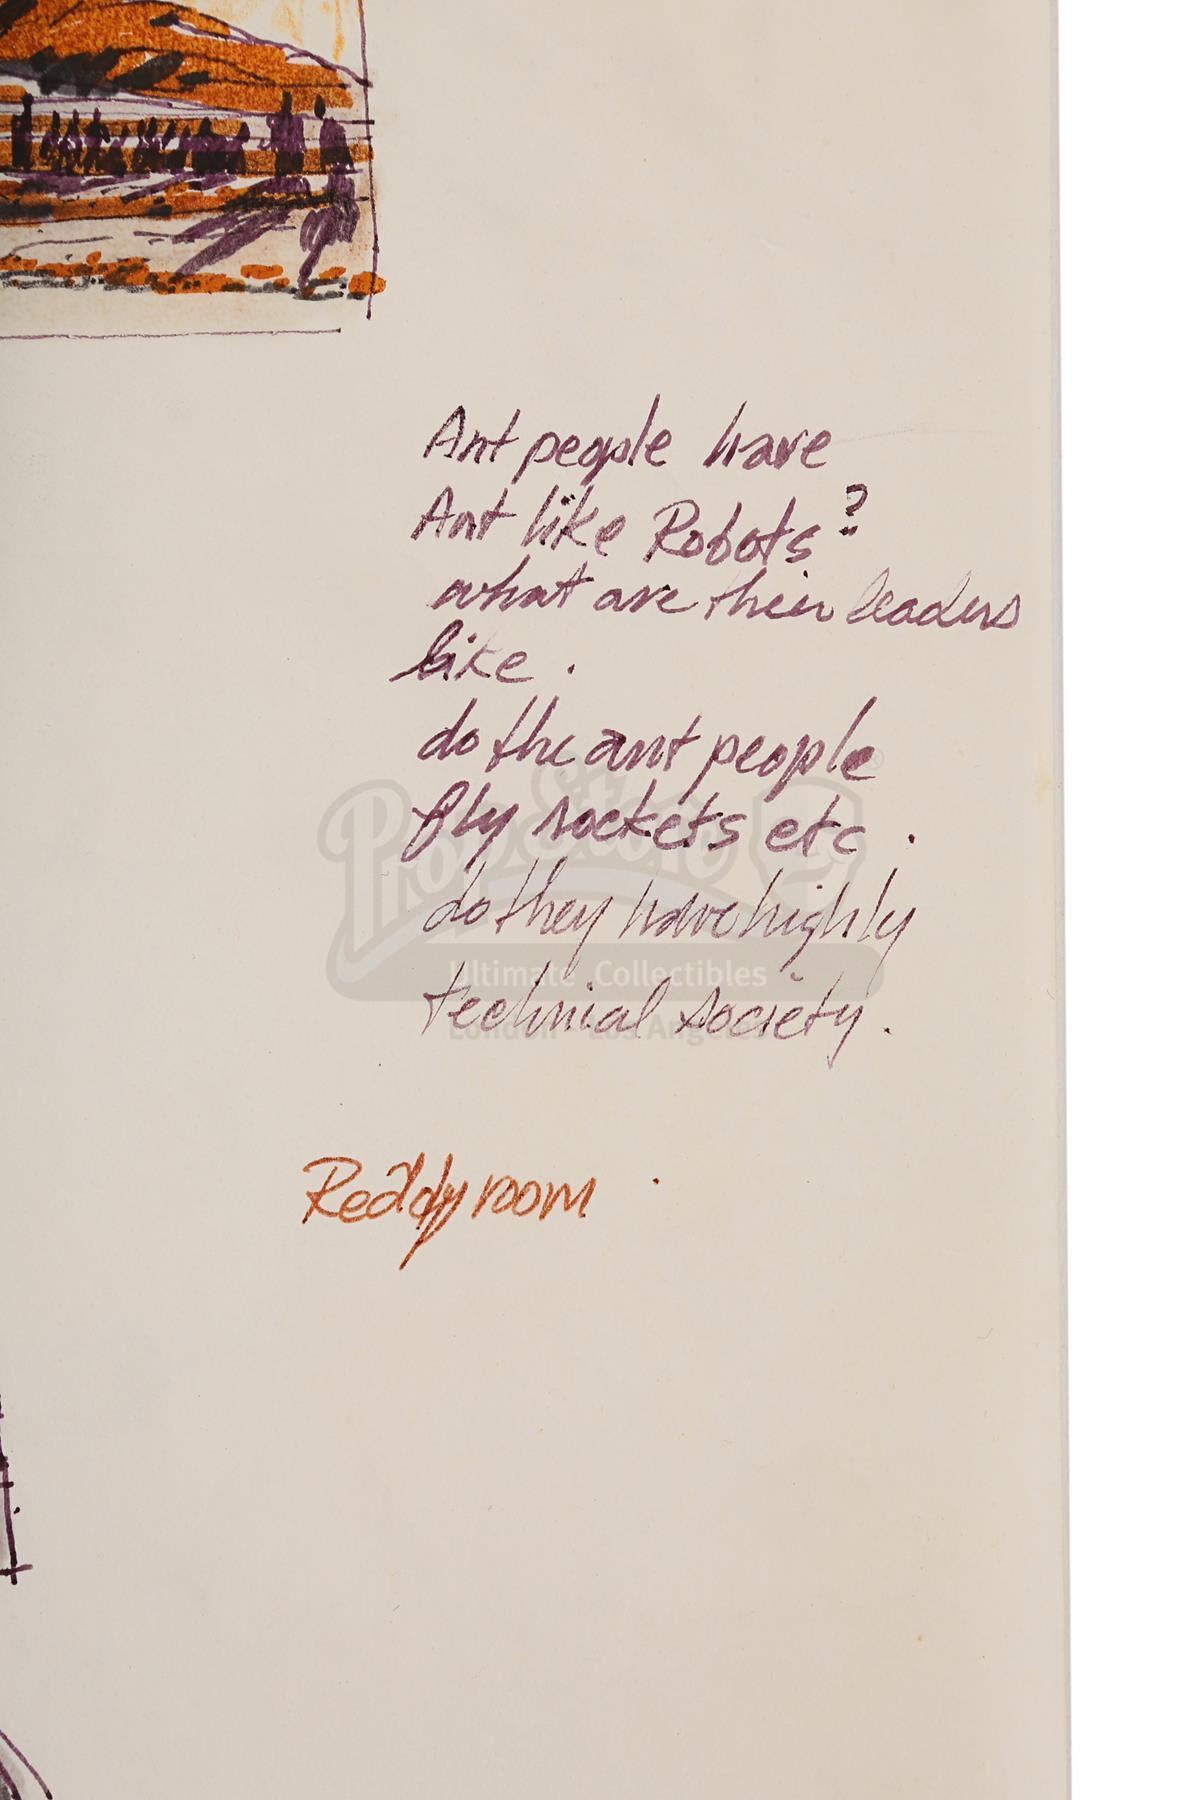 Ant people have
Ant like Robots?
what are their leaders
like.
do the ant people
fly rockets etc.
do they have highly
technial society.
Reddy room.
Prop Store
Ultimate Collectibles
London - Los Angeles